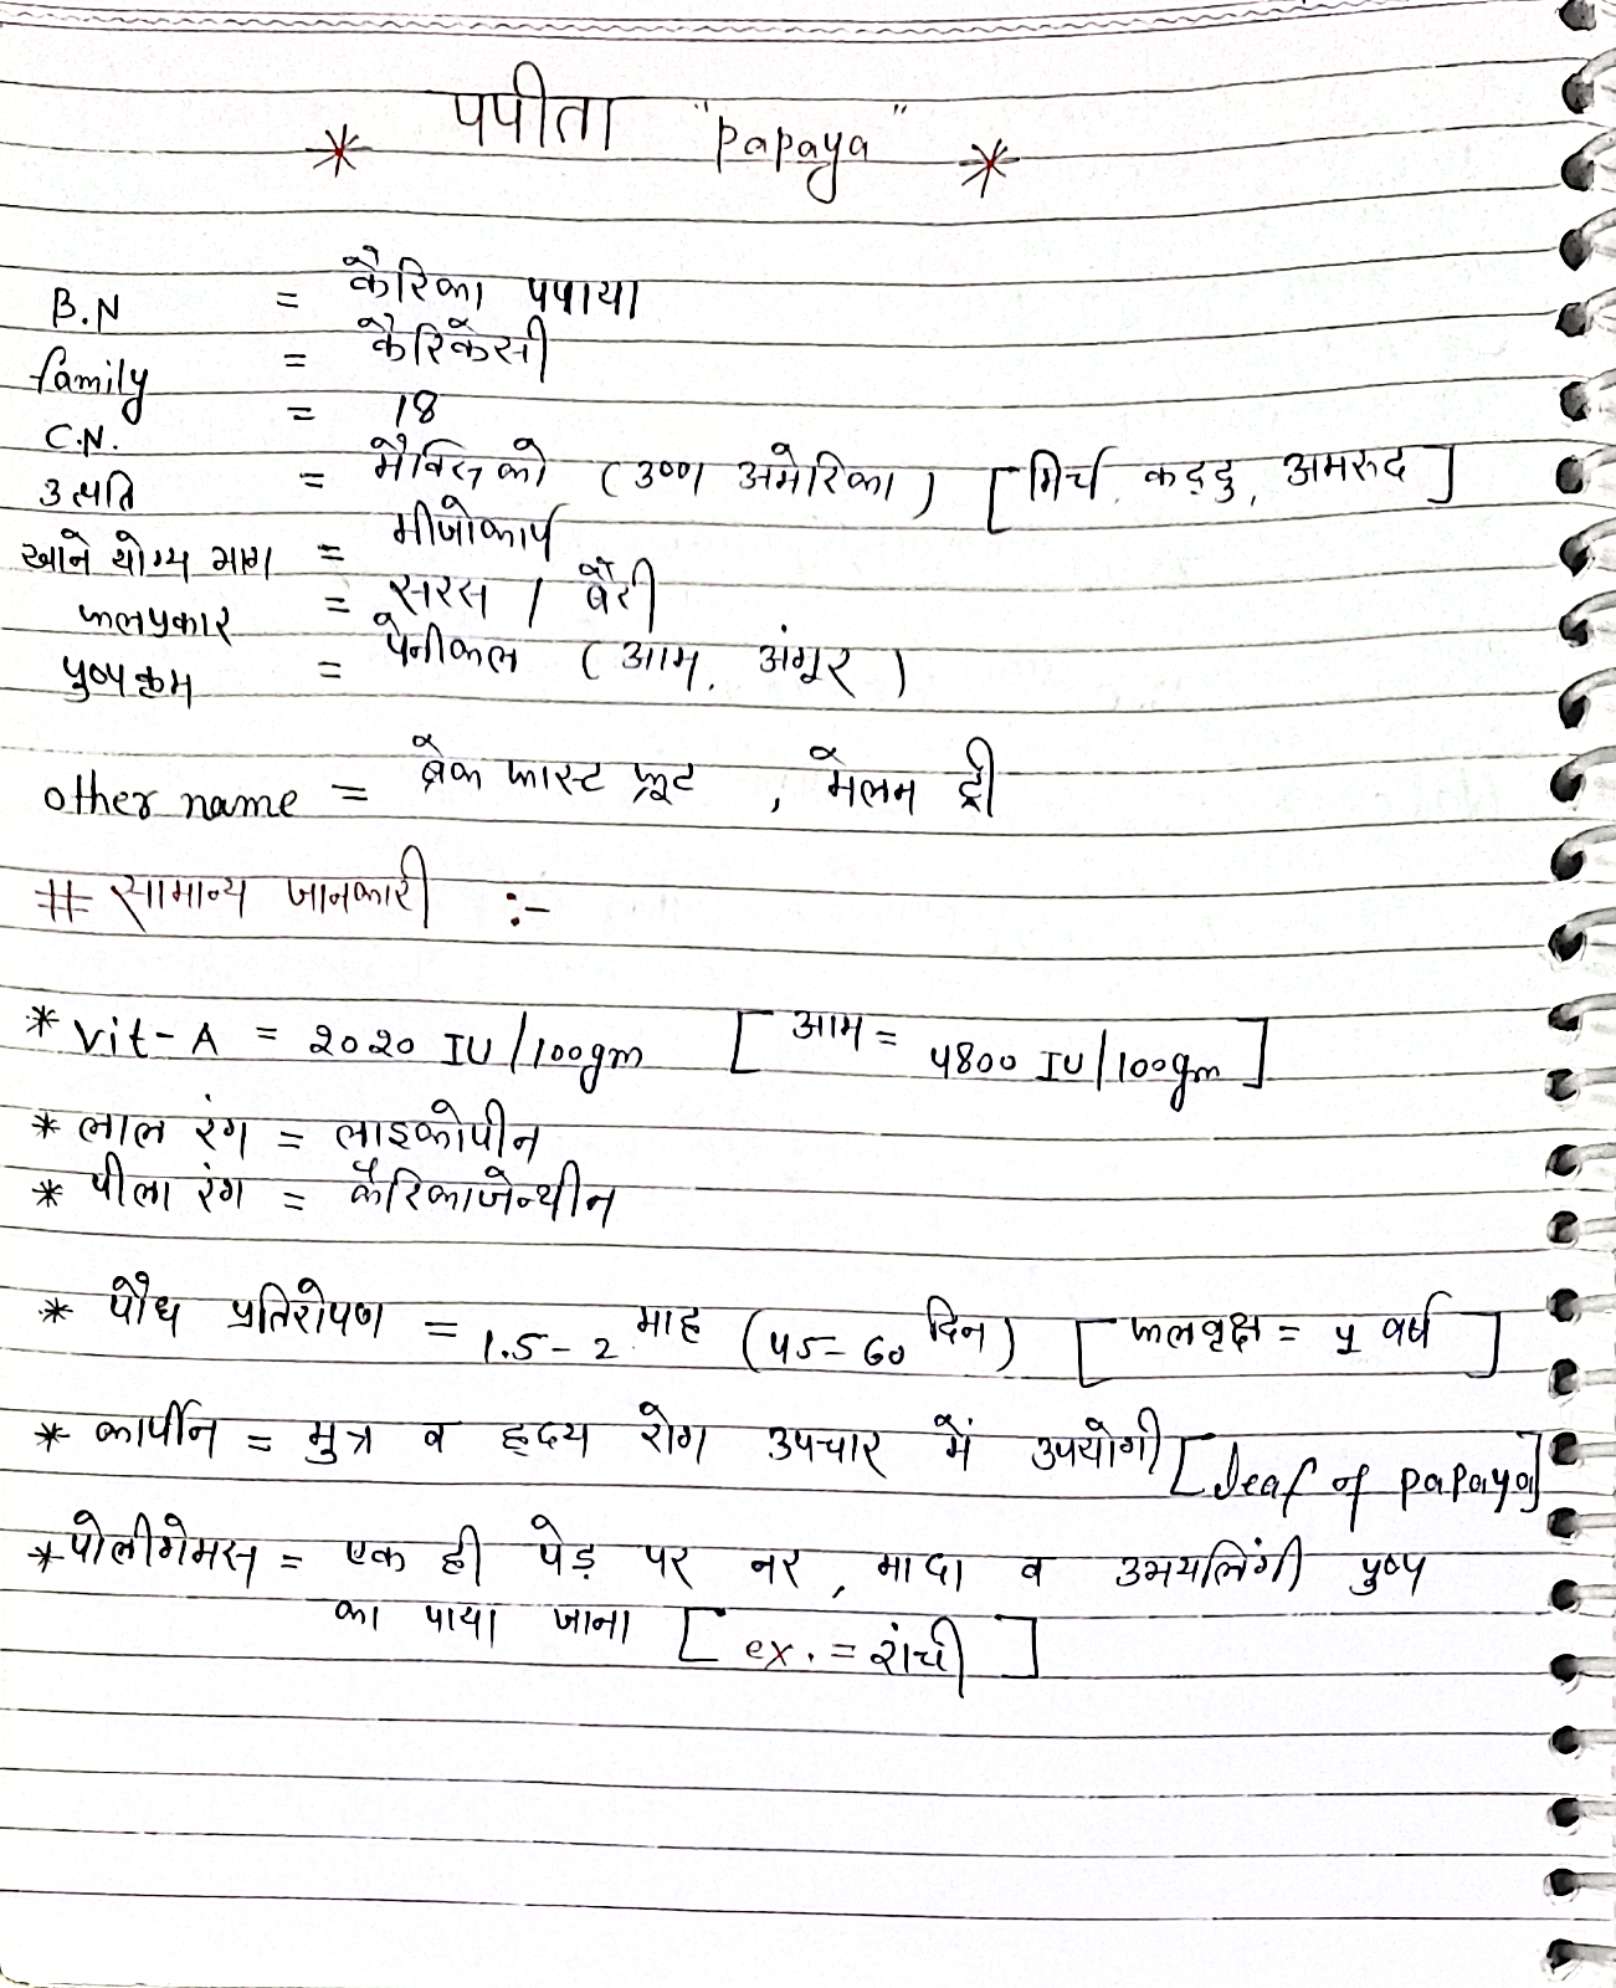 * पपीता "papaya" *
B.N = कैरिका पपाया
family = कैरिकेसी
C.N. = 18
उत्पति = मैक्सिको (उष्ण अमेरिका) [मिर्च, कद्दु, अमरुद]
खाने योग्य भाग = मीजोकार्प
फलप्रकार = सरस / बैरी
पुष्पक्रम = पेनीकल (आम, अंगूर)
other name = ब्रेक फास्ट फ्रूट , मेलन ट्री
# सामान्य जानकारी :-
* Vit-A = 2020 IU/100gm [आम = 4800 IU/100gm]
* लाल रंग = लाइकोपीन
* पीला रंग = कैरिकाजेन्थीन
* पौध प्रतिरोपण = 1.5-2 माह (45-60 दिन) [फलवृक्ष = 1 वर्ष]
* कार्पीन = मुत्र व हृदय रोग उपचार में उपयोगी [leaf of papaya]
* पोलीगेमस = एक ही पेड़ पर नर, मादा व उभयलिंगी पुष्प
का पाया जाना [ex. = रांची]